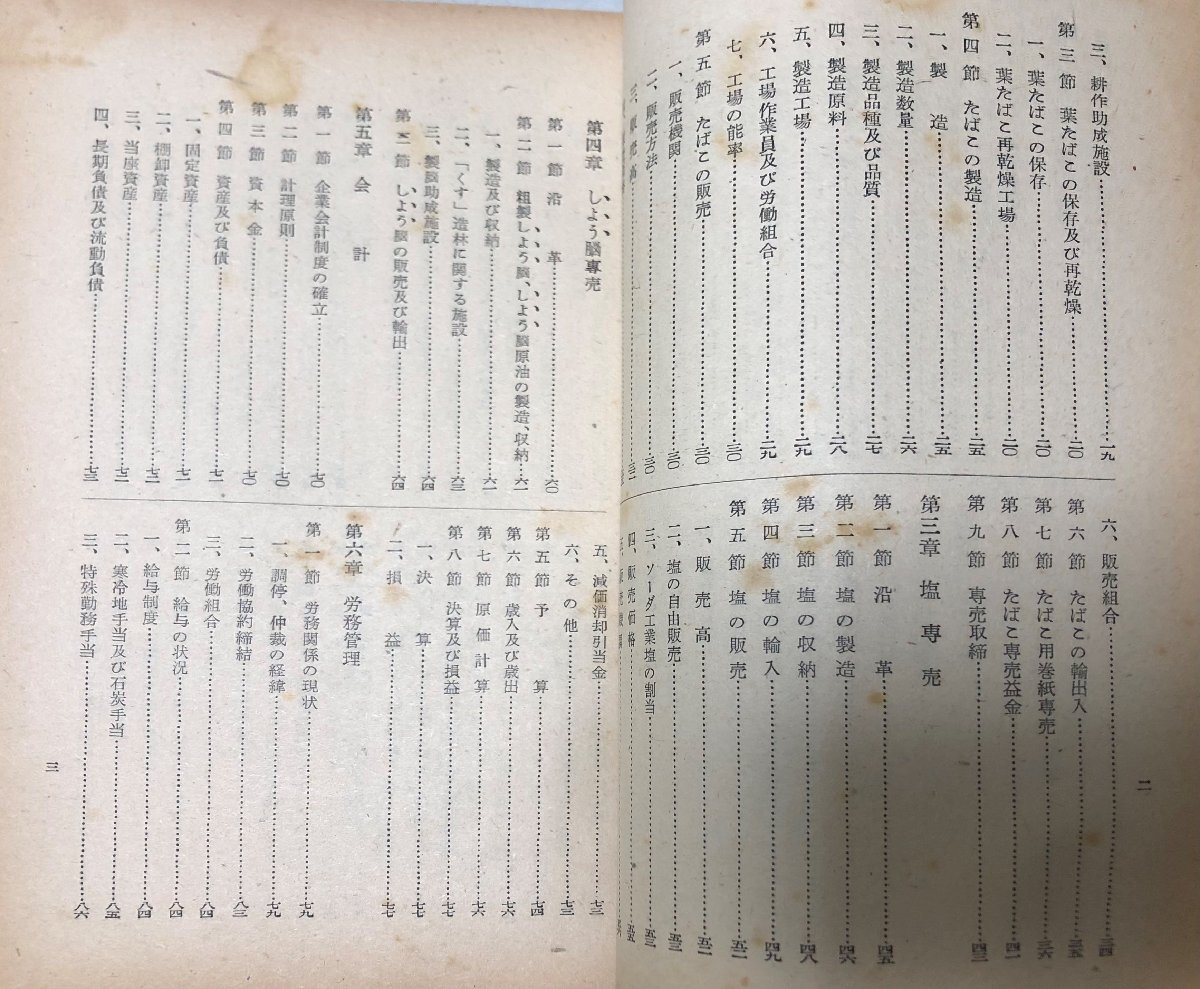 三、耕作助成施設………一九
第三節 葉たばこの保存及び再乾燥………二〇
一、葉たばこの保存………二〇
二、葉たばこ再乾燥工場………二〇
第四節 たばこの製造………二五
一、製造………二五
二、製造数量………二六
三、製造品種及び品質………二七
四、製造原料………二八
五、製造工場………二九
六、工場作業員及び労働組合………二九
七、工場の能率………三〇
第五節 たばこの販売………三〇
一、販売機関………三〇
二、販売方法………三〇
六、販売組合………三四
第六節 たばこの輸出入………三五
第七節 たばこ用巻紙専売………三六
第八節 たばこ専売益金………四一
第九節 専売取締………四三
第三章 塩専売
第一節 沿革………四五
第二節 塩の製造………四六
第三節 塩の収納………四八
第四節 塩の輸入………四九
第五節 塩の販売………五二
一、販売高………五二
二、塩の自由販売………五三
三、ソーダ工業塩の割当………五三
四、販売価格………五五
二
第四章 しよう脳専売
第一節 沿革………六〇
第二節 粗製しよう脳、しよう脳原油の製造、収納………六一
一、製造及び収納………六一
二、「くす」造林に関する施設………六三
三、製脳助成施設………六四
第三節 しよう脳の販売及び輸出………六四
第五章 会計
第一節 企業会計制度の確立………七〇
第二節 計理原則………七〇
第三節 資本金………七〇
第四節 資産及び負債………七一
一、固定資産………七一
二、棚卸資産………七二
三、当座資産………七三
四、長期負債及び流動負債………七三
五、減価消却引当金………七三
六、その他………七三
第五節 予算………七四
第六節 歳入及び歳出………七六
第七節 原価計算………七六
第八節 決算及び損益………七七
一、決算………七七
二、損益………七七
第六章 労務管理
第一節 労務関係の現状………七九
一、調停、仲裁の経緯………七九
二、労働協約締結………八三
三、労働組合………八四
第二節 給与の状況………八四
一、給与制度………八四
二、寒冷地手当及び石炭手当………八五
三、特殊勤務手当………八六
三